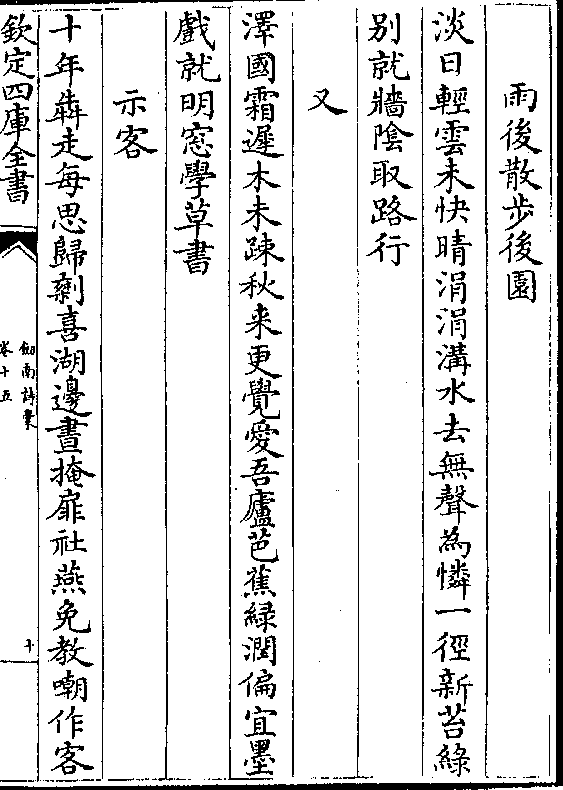 雨後散步後園
淡日輕雲未快晴涓涓溝水去無聲為憐一徑新苔綠
别就牆陰取路行
又
澤國霜遲木未疎秋來更覺愛吾廬芭蕉緑潤偏宜墨
戲就明窓學草書
示客
十年犇走每思歸剰喜湖邊晝掩扉社燕免教嘲作客
欽定四庫全書
劍南詩稾
卷十五
十